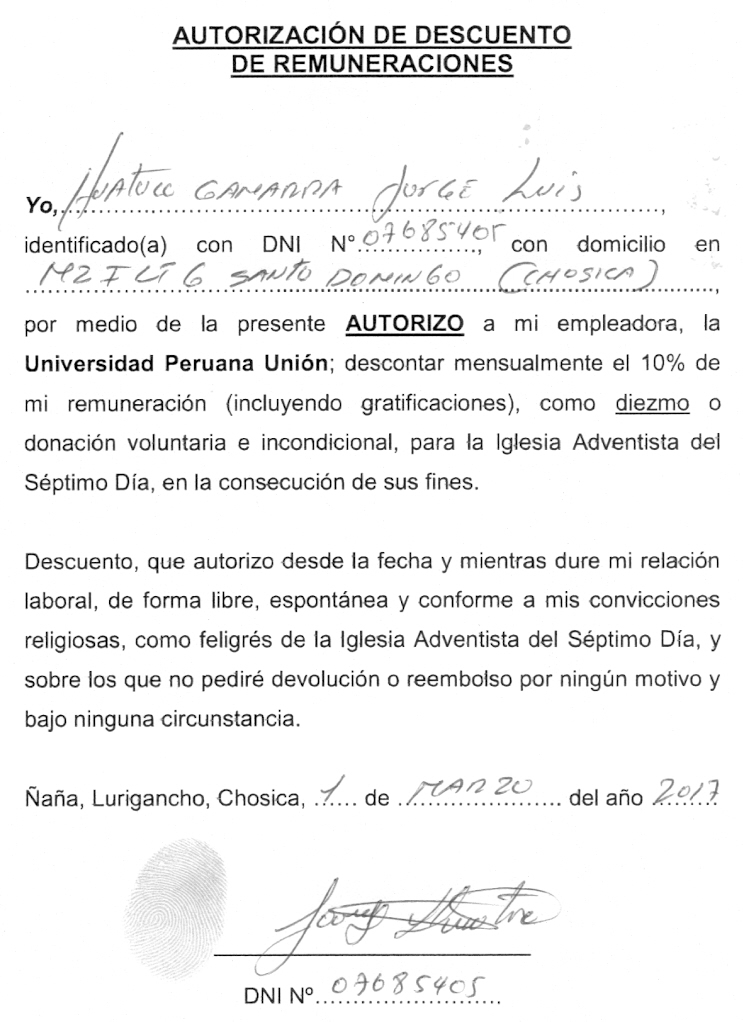 AUTORIZACIÓN DE DESCUENTO
DE REMUNERACIONES
Yo, HUATUCO GAMARRA JORGE LUIS,
identificado(a) con DNI Nº 07685405, con domicilio en
MZ I LT 6 SANTO DOMINGO (CHOSICA),
por medio de la presente AUTORIZO a mi empleadora, la
Universidad Peruana Unión; descontar mensualmente el 10% de
mi remuneración (incluyendo gratificaciones), como diezmo o
donación voluntaria e incondicional, para la Iglesia Adventista del
Séptimo Día, en la consecución de sus fines.
Descuento, que autorizo desde la fecha y mientras dure mi relación
laboral, de forma libre, espontánea y conforme a mis convicciones
religiosas, como feligrés de la Iglesia Adventista del Séptimo Día, y
sobre los que no pediré devolución o reembolso por ningún motivo y
bajo ninguna circunstancia.
Ñaña, Lurigancho, Chosica, 1 de MARZO del año 2017
DNI Nº 07685405